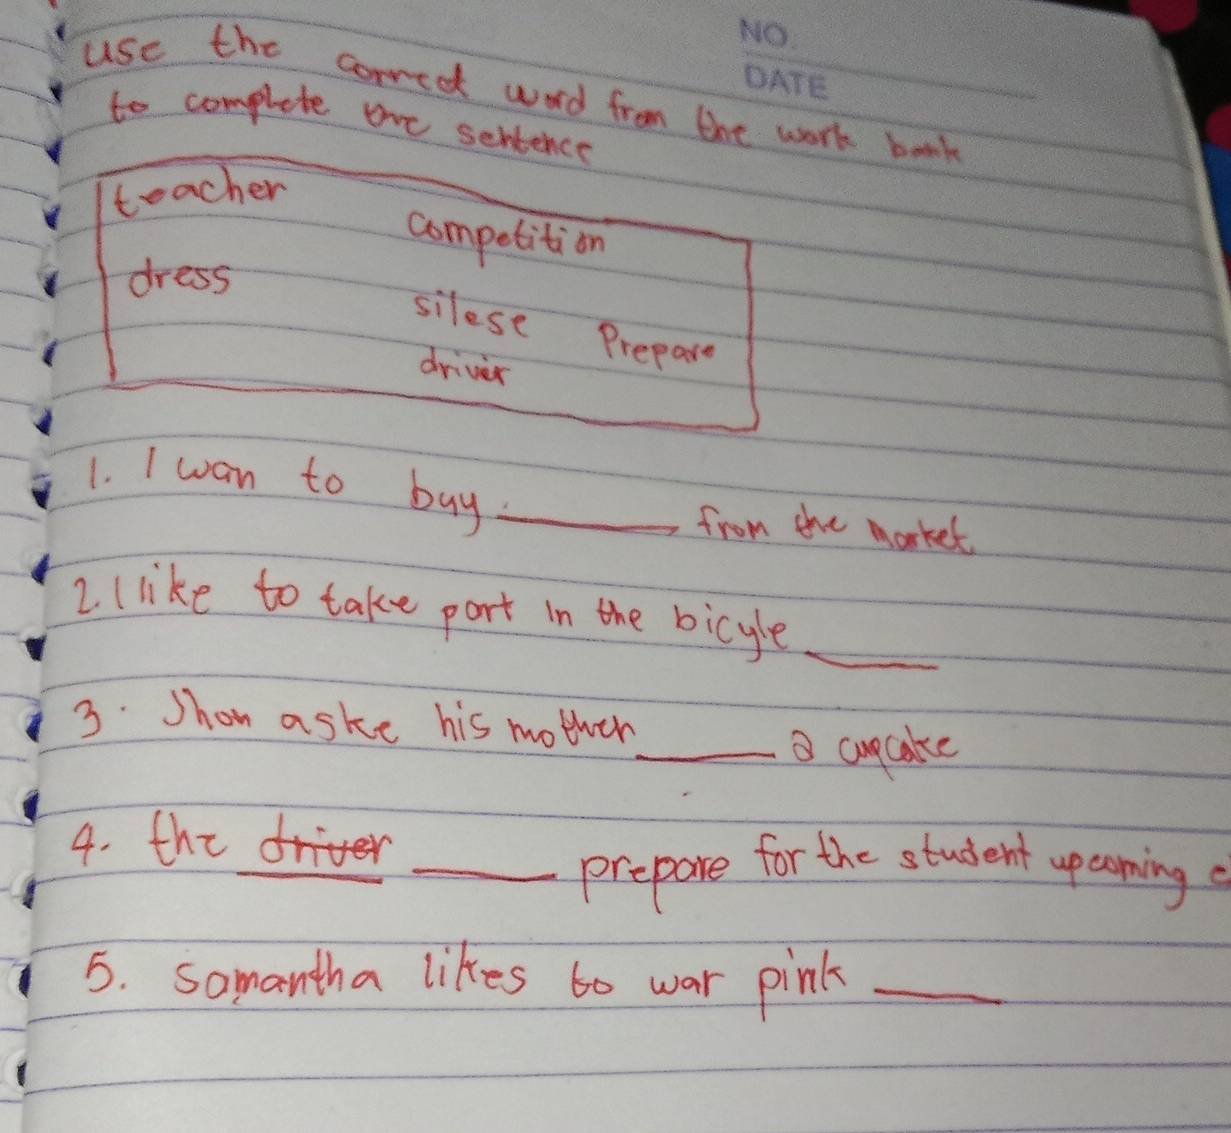 NO.
DATE
use the correct word from the work bank
to complete the sentence
teacher competition
dress silese Prepare
driver
1. I wan to buy ______ from the market
2. I like to take part in the bicyle ______
3. Jhon aske his mother ______ a cupcake
4. the driver ______ prepare for the student upcoming
5. Samantha likes to war pink ______